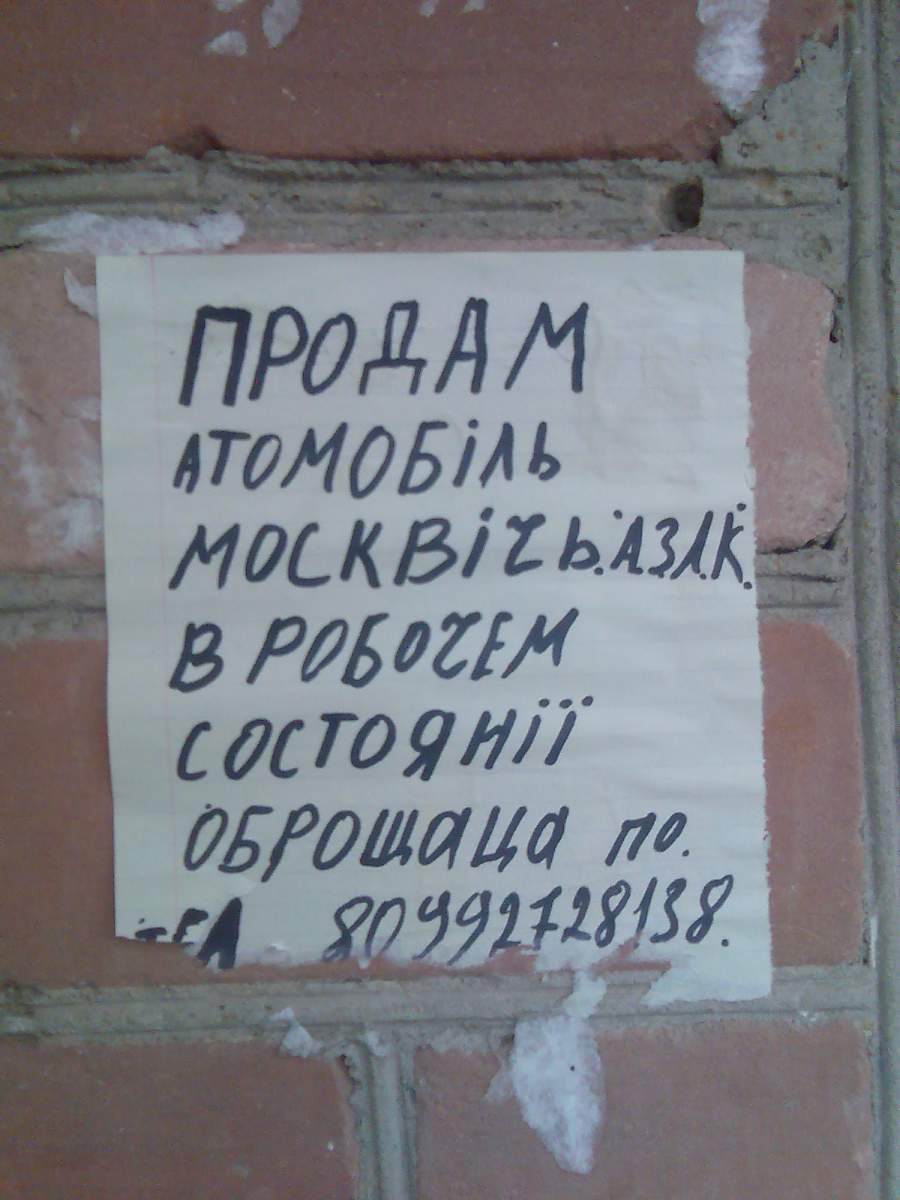 ПРОДАМ
АТОМОБіЛЬ
МОСКВіЧЬ.А.З.Л.К.
В РОБОЧЕМ
СОСТОЯНІЇ
ОБРОЩАЦА ПО.
ТЕЛ 80992728138.